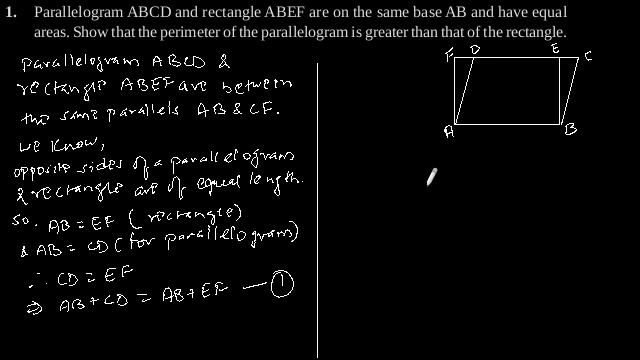 1. Parallelogram ABCD and rectangle ABEF are on the same base AB and have equal
areas. Show that the perimeter of the parallelogram is greater than that of the rectangle.
parallelogram ABCD &
rectangle ABEF are between
the same parallels AB & CF.
we know,
opposite sides of a parallelogram
& rectangle are of equal length.
So, AB = EF (rectangle)
& AB = CD (for parallelogram)
∴ CD = EF
⇒ AB + CD = AB + EF — ①
F D E C
A B